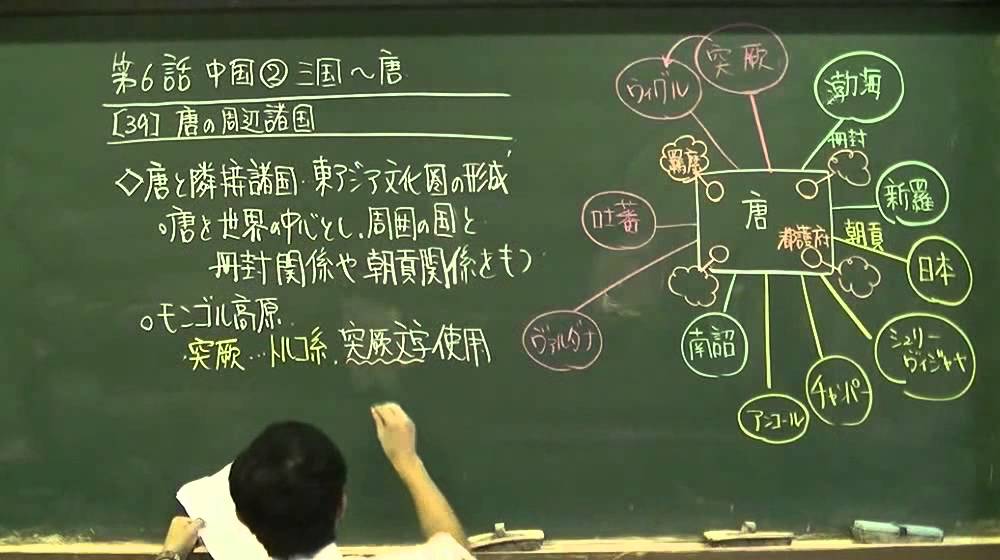 第6話 中国② 三国～唐
[39] 唐の周辺諸国
◇唐と隣接諸国・東アジア文化圏の形成
○唐を世界の中心とし、周囲の国と
冊封関係や朝貢関係をもつ
○モンゴル高原
・突厥…トルコ系、突厥文字使用
突厥
ウイグル
渤海
冊封
羈縻
唐
新羅
吐蕃
都護府
朝貢
日本
ヴァルダナ
南詔
シュリー
ヴィジャヤ
チャンパー
アンコール